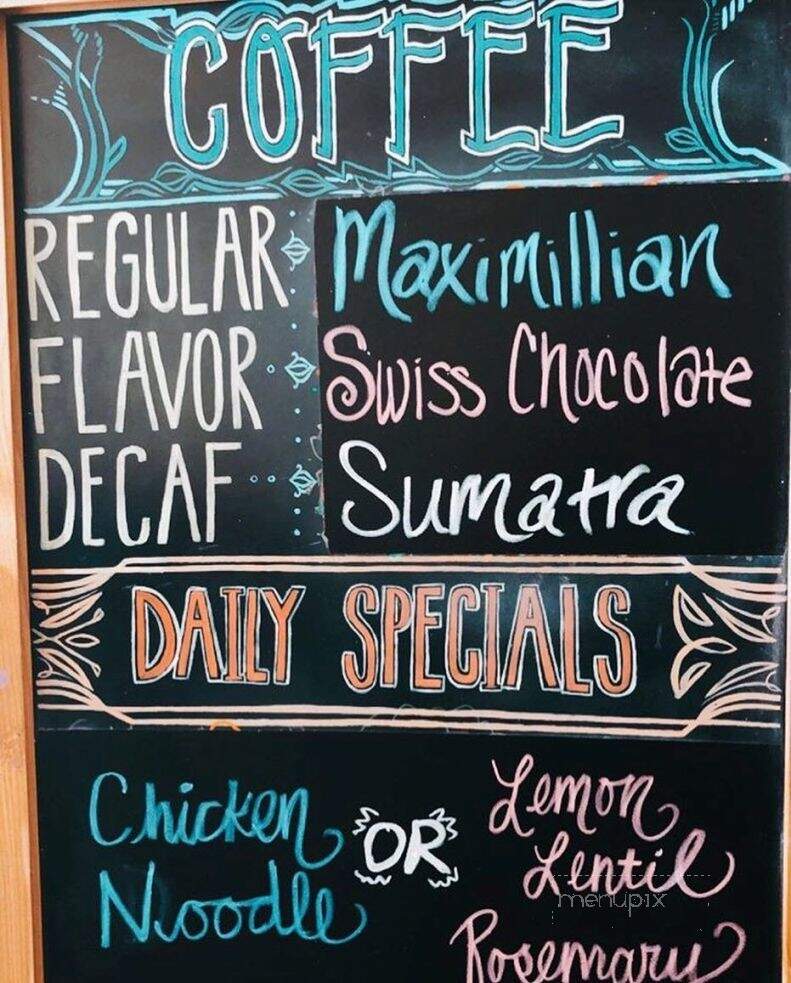 COFFEE
REGULAR Maximillian
FLAVOR Swiss Chocolate
DECAF Sumatra
DAILY SPECIALS
Chicken Noodle
OR
Lemon Lentil Rosemary
menupix